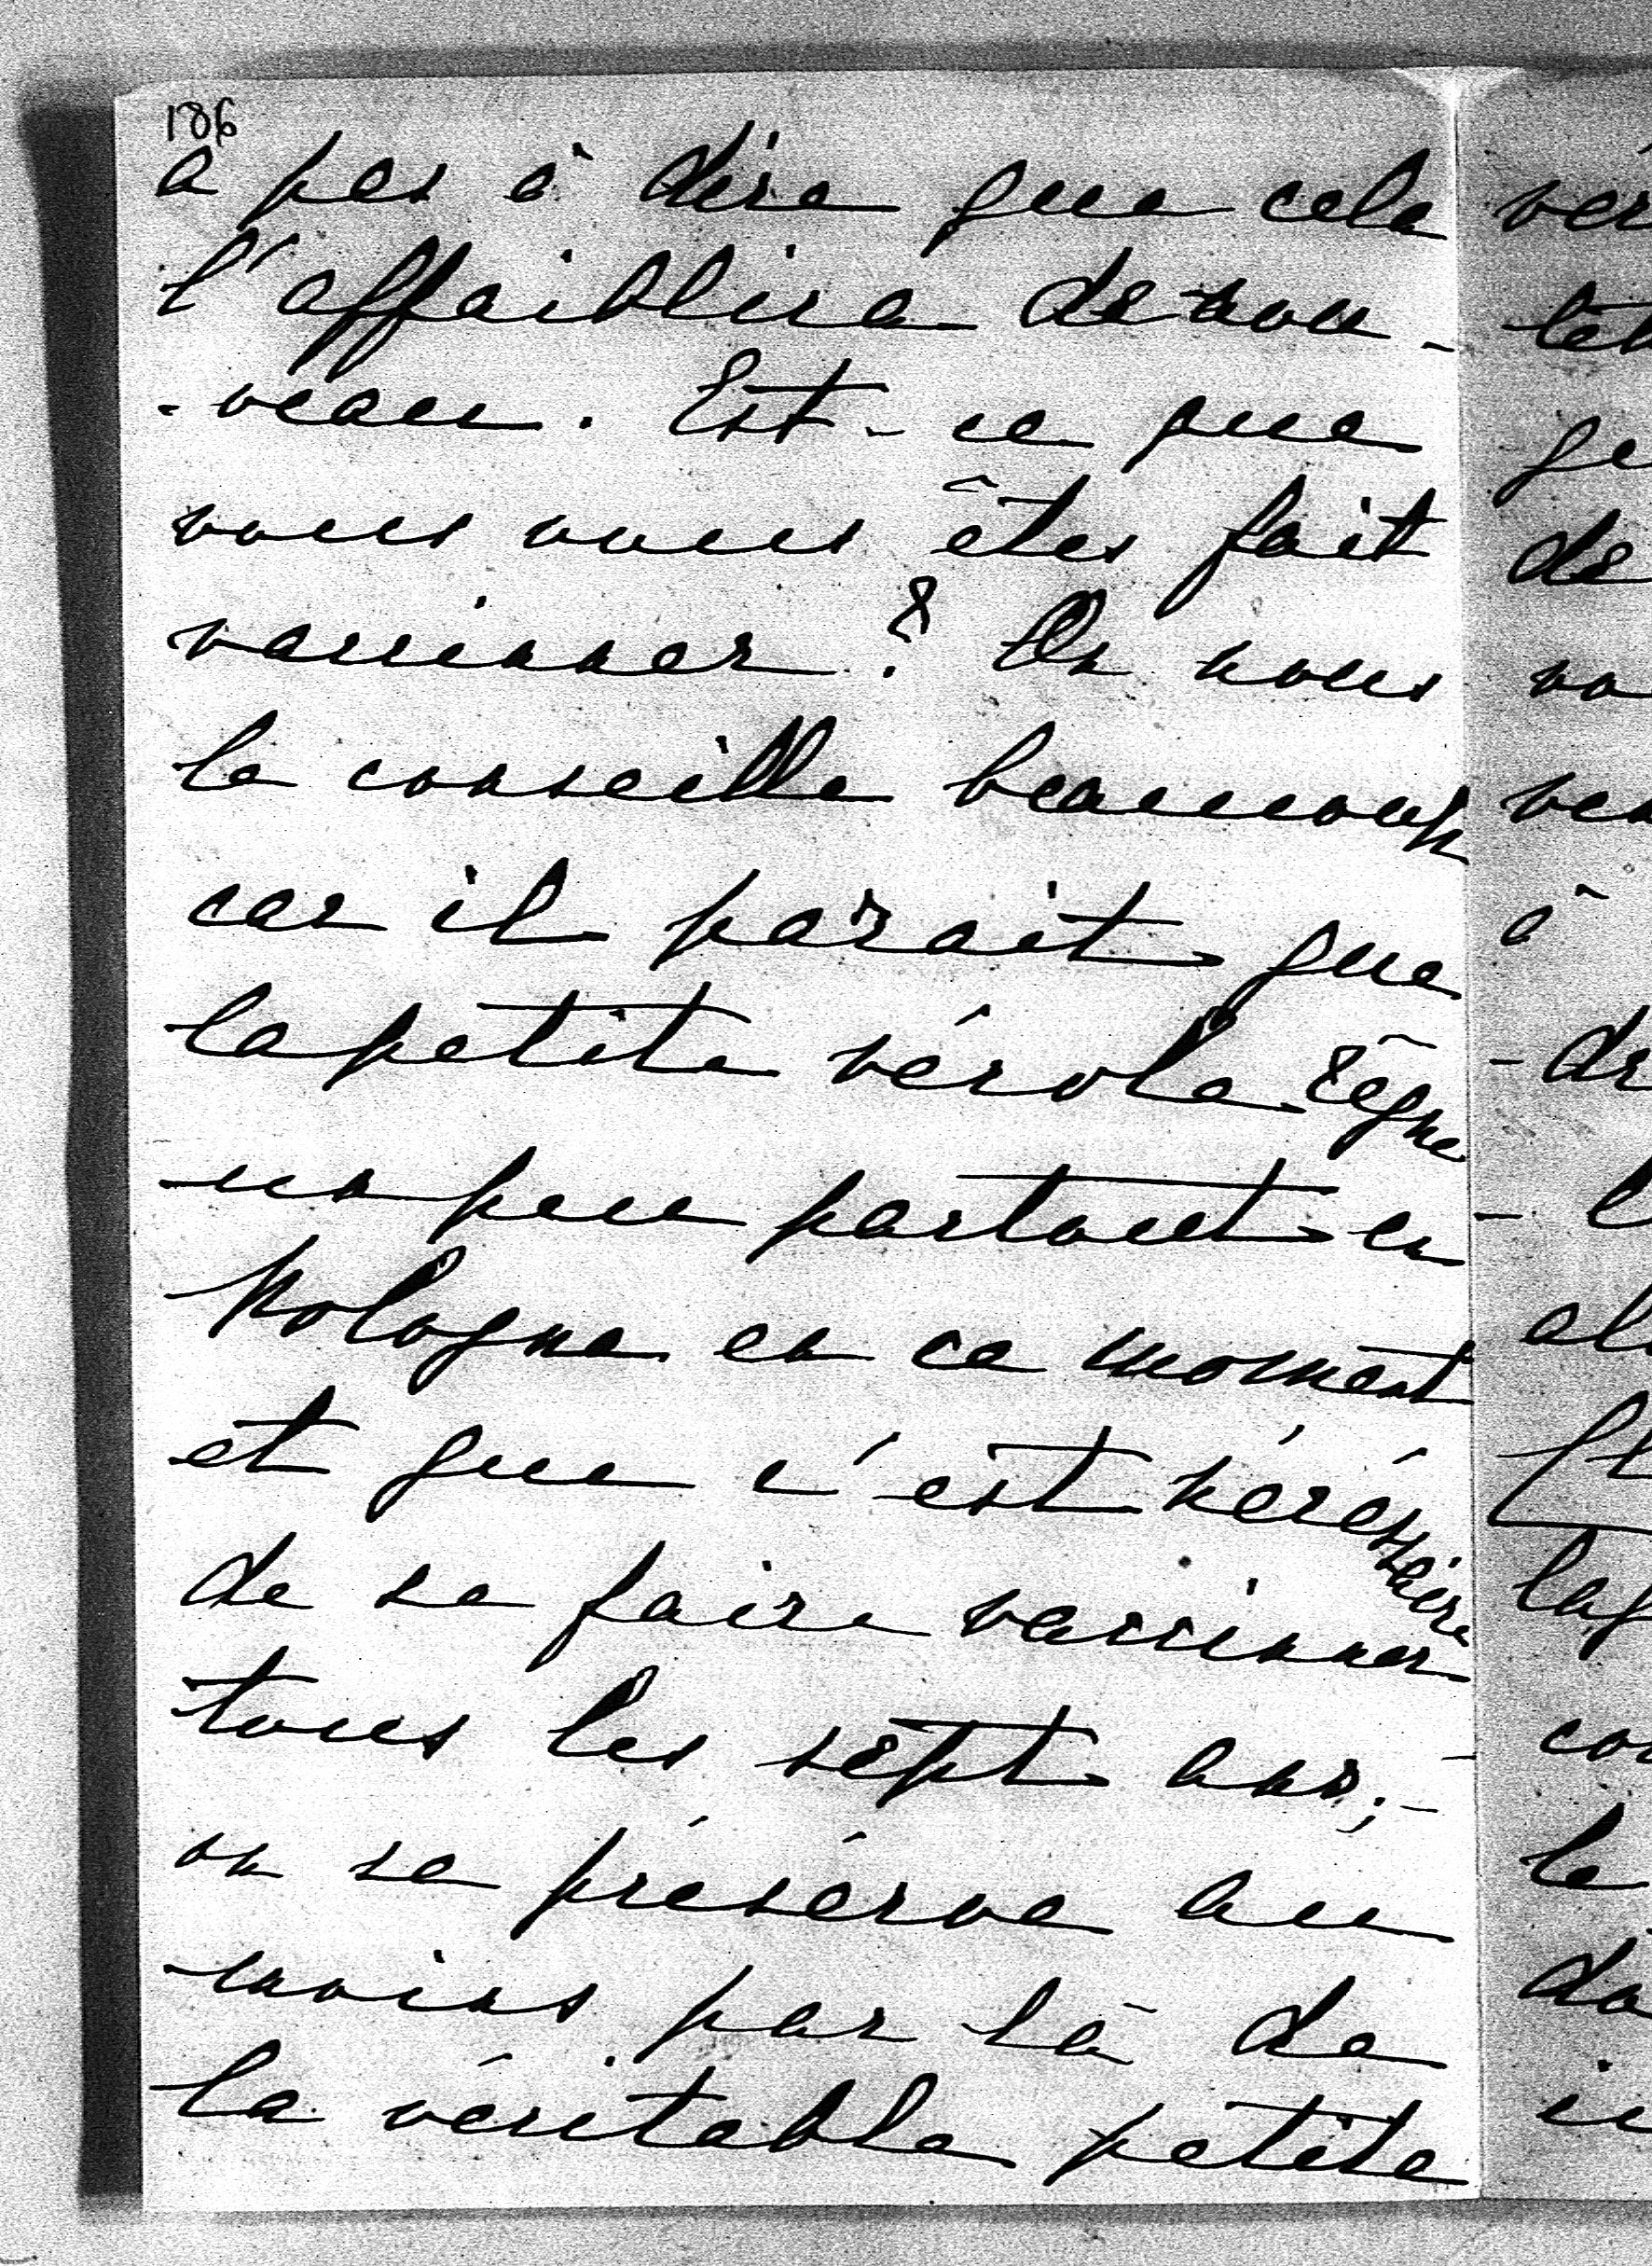 186
a pas à dire que cela
l'affaiblira de nou-
-veau. Est-ce que
vous vous êtes fait
vacciner ? On nous
le conseille beaucoup
car il parait que
la petite vérole règne
un peu partout en
Pologne en ce moment
et que c'est nécessaire
de se faire vacciner
tous les sept ans;-
on se préserve au
moins par là de
la véritable petite